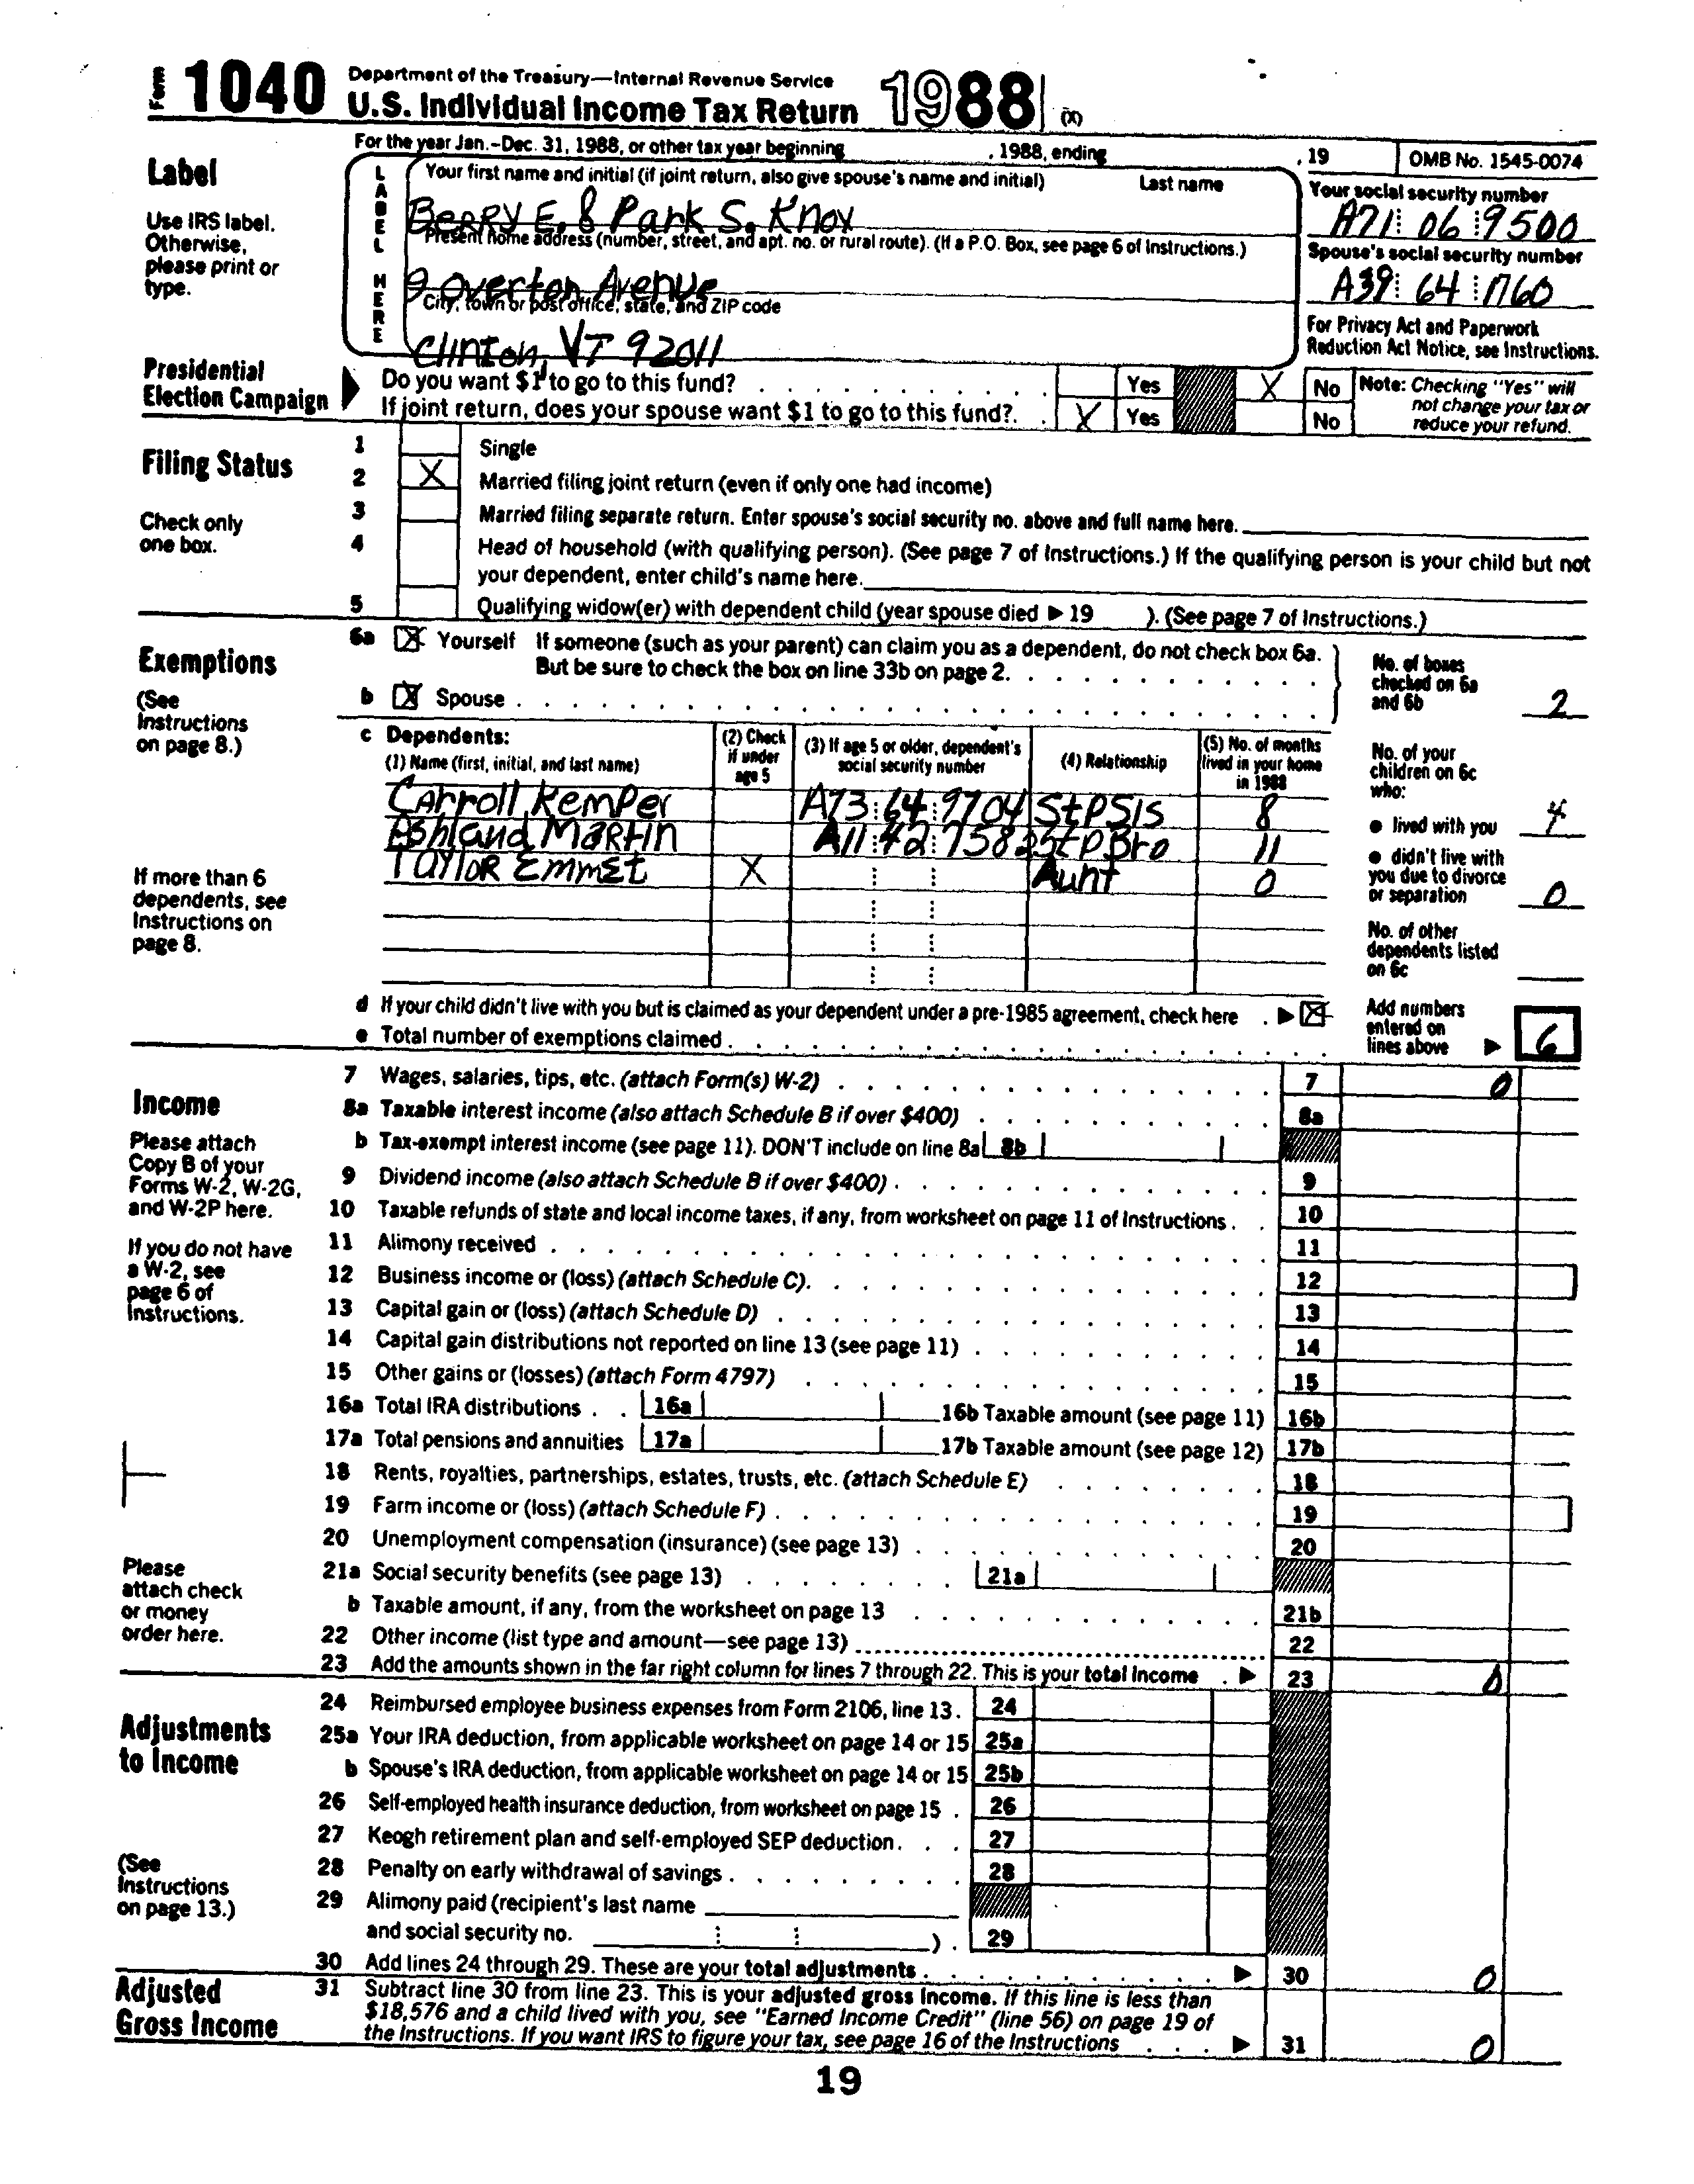 Form 1040 Department of the Treasury—Internal Revenue Service
U.S. Individual Income Tax Return 1988 (X)
For the year Jan.–Dec. 31, 1988, or other tax year beginning , 1988, ending , 19 OMB No. 1545-0074
Label
Use IRS label.
Otherwise,
please print or
type.
LABEL HERE
Your first name and initial (if joint return, also give spouse's name and initial) Last name
Berry E. & Park S. Knox
Present home address (number, street, and apt. no. or rural route). (If a P.O. Box, see page 6 of Instructions.)
9 Overton Avenue
City, town or post office, state, and ZIP code
Clinton, VT 92011
Your social security number
A71 06 9500
Spouse's social security number
A39 64 1760
For Privacy Act and Paperwork
Reduction Act Notice, see Instructions.
Presidential
Election Campaign
Do you want $1 to go to this fund? Yes X No
If joint return, does your spouse want $1 to go to this fund? X Yes No
Note: Checking "Yes" will
not change your tax or
reduce your refund.
Filing Status
Check only
one box.
1 Single
2 X Married filing joint return (even if only one had income)
3 Married filing separate return. Enter spouse's social security no. above and full name here.
4 Head of household (with qualifying person). (See page 7 of Instructions.) If the qualifying person is your child but not
your dependent, enter child's name here.
5 Qualifying widow(er) with dependent child (year spouse died ▶ 19 ). (See page 7 of Instructions.)
Exemptions
(See
Instructions
on page 8.)
If more than 6
dependents, see
Instructions on
page 8.
6a X Yourself If someone (such as your parent) can claim you as a dependent, do not check box 6a.
But be sure to check the box on line 33b on page 2.
b X Spouse
No. of boxes
checked on 6a
and 6b 2
c Dependents:
(1) Name (first, initial, and last name)
(2) Check
if under
age 5
(3) If age 5 or older, dependent's
social security number
(4) Relationship
(5) No. of months
lived in your home
in 1988
Carroll Kemper A73 64 9704 StPSis 8
Ashland Martin A11 42 7582 StPBro 11
Taylor Emmet X Aunt 0
No. of your
children on 6c
who:
● lived with you 4
● didn't live with
you due to divorce
or separation 0
No. of other
dependents listed
on 6c
d If your child didn't live with you but is claimed as your dependent under a pre-1985 agreement, check here ▶ X
e Total number of exemptions claimed
Add numbers
entered on
lines above ▶ 6
Income
Please attach
Copy B of your
Forms W-2, W-2G,
and W-2P here.
If you do not have
a W-2, see
page 6 of
Instructions.
Please
attach check
or money
order here.
7 Wages, salaries, tips, etc. (attach Form(s) W-2) 7 0
8a Taxable interest income (also attach Schedule B if over $400) 8a
b Tax-exempt interest income (see page 11). DON'T include on line 8a 8b
9 Dividend income (also attach Schedule B if over $400) 9
10 Taxable refunds of state and local income taxes, if any, from worksheet on page 11 of Instructions 10
11 Alimony received 11
12 Business income or (loss) (attach Schedule C). 12
13 Capital gain or (loss) (attach Schedule D) 13
14 Capital gain distributions not reported on line 13 (see page 11) 14
15 Other gains or (losses) (attach Form 4797) 15
16a Total IRA distributions 16a 16b Taxable amount (see page 11) 16b
17a Total pensions and annuities 17a 17b Taxable amount (see page 12) 17b
18 Rents, royalties, partnerships, estates, trusts, etc. (attach Schedule E) 18
19 Farm income or (loss) (attach Schedule F) 19
20 Unemployment compensation (insurance) (see page 13) 20
21a Social security benefits (see page 13) 21a
b Taxable amount, if any, from the worksheet on page 13 21b
22 Other income (list type and amount—see page 13) 22
23 Add the amounts shown in the far right column for lines 7 through 22. This is your total income ▶ 23 0
Adjustments
to Income
(See
Instructions
on page 13.)
24 Reimbursed employee business expenses from Form 2106, line 13. 24
25a Your IRA deduction, from applicable worksheet on page 14 or 15 25a
b Spouse's IRA deduction, from applicable worksheet on page 14 or 15 25b
26 Self-employed health insurance deduction, from worksheet on page 15 26
27 Keogh retirement plan and self-employed SEP deduction 27
28 Penalty on early withdrawal of savings 28
29 Alimony paid (recipient's last name
and social security no. ) 29
30 Add lines 24 through 29. These are your total adjustments ▶ 30 0
Adjusted
Gross Income
31 Subtract line 30 from line 23. This is your adjusted gross income. If this line is less than
$18,576 and a child lived with you, see "Earned Income Credit" (line 56) on page 19 of
the Instructions. If you want IRS to figure your tax, see page 16 of the Instructions ▶ 31 0
19